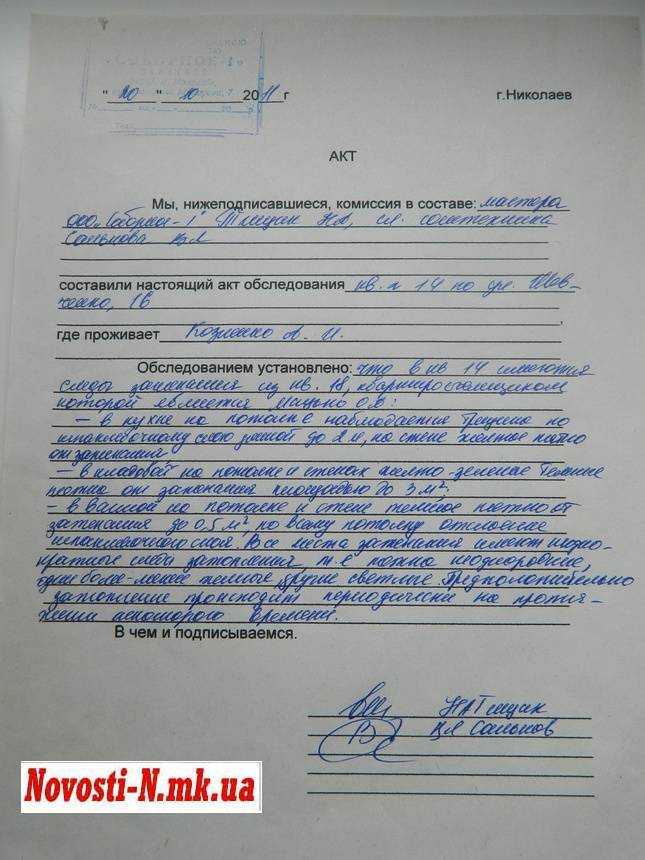 «СОБОРНОЕ-1»
"20" 10 2011 г г.Николаев
АКТ
Мы, нижеподписавшиеся, комиссия в составе: мастера
ООО „Соборное-1" Тищик НА, сл. сантехника
Салькова ВЛ
составили настоящий акт обследования кв. № 14 по ул. Шев-
ченко, 1б
где проживает Козленко А. И.
Обследованием установлено: что в кв 14 имеются
следы затекания из кв. 18, квартиросъемщиком
которой является О.В:
– в кухне на потолке наблюдается трещина по
шпаклевочному слою длиной до 2 м, на стене желтое пятно
от затекания
– в кладовой на потолке и стенах желто-зеленые темные
пятна от затекания площадью до 3 м²;
– в ванной на потолке и стене темное пятно от
затекания до 0,5 м², по всему потолку отслоение
шпаклевочного слоя. Все места затекания имеют неодно-
кратные следы затопления, т-е пятна неоднородные,
одни более-менее темные другие светлые. Предположительно
затопление происходит периодически на протя-
жении некоторого времени.
В чем и подписываемся.
НА Тищик
ВЛ Сальков
Novosti-N.mk.ua